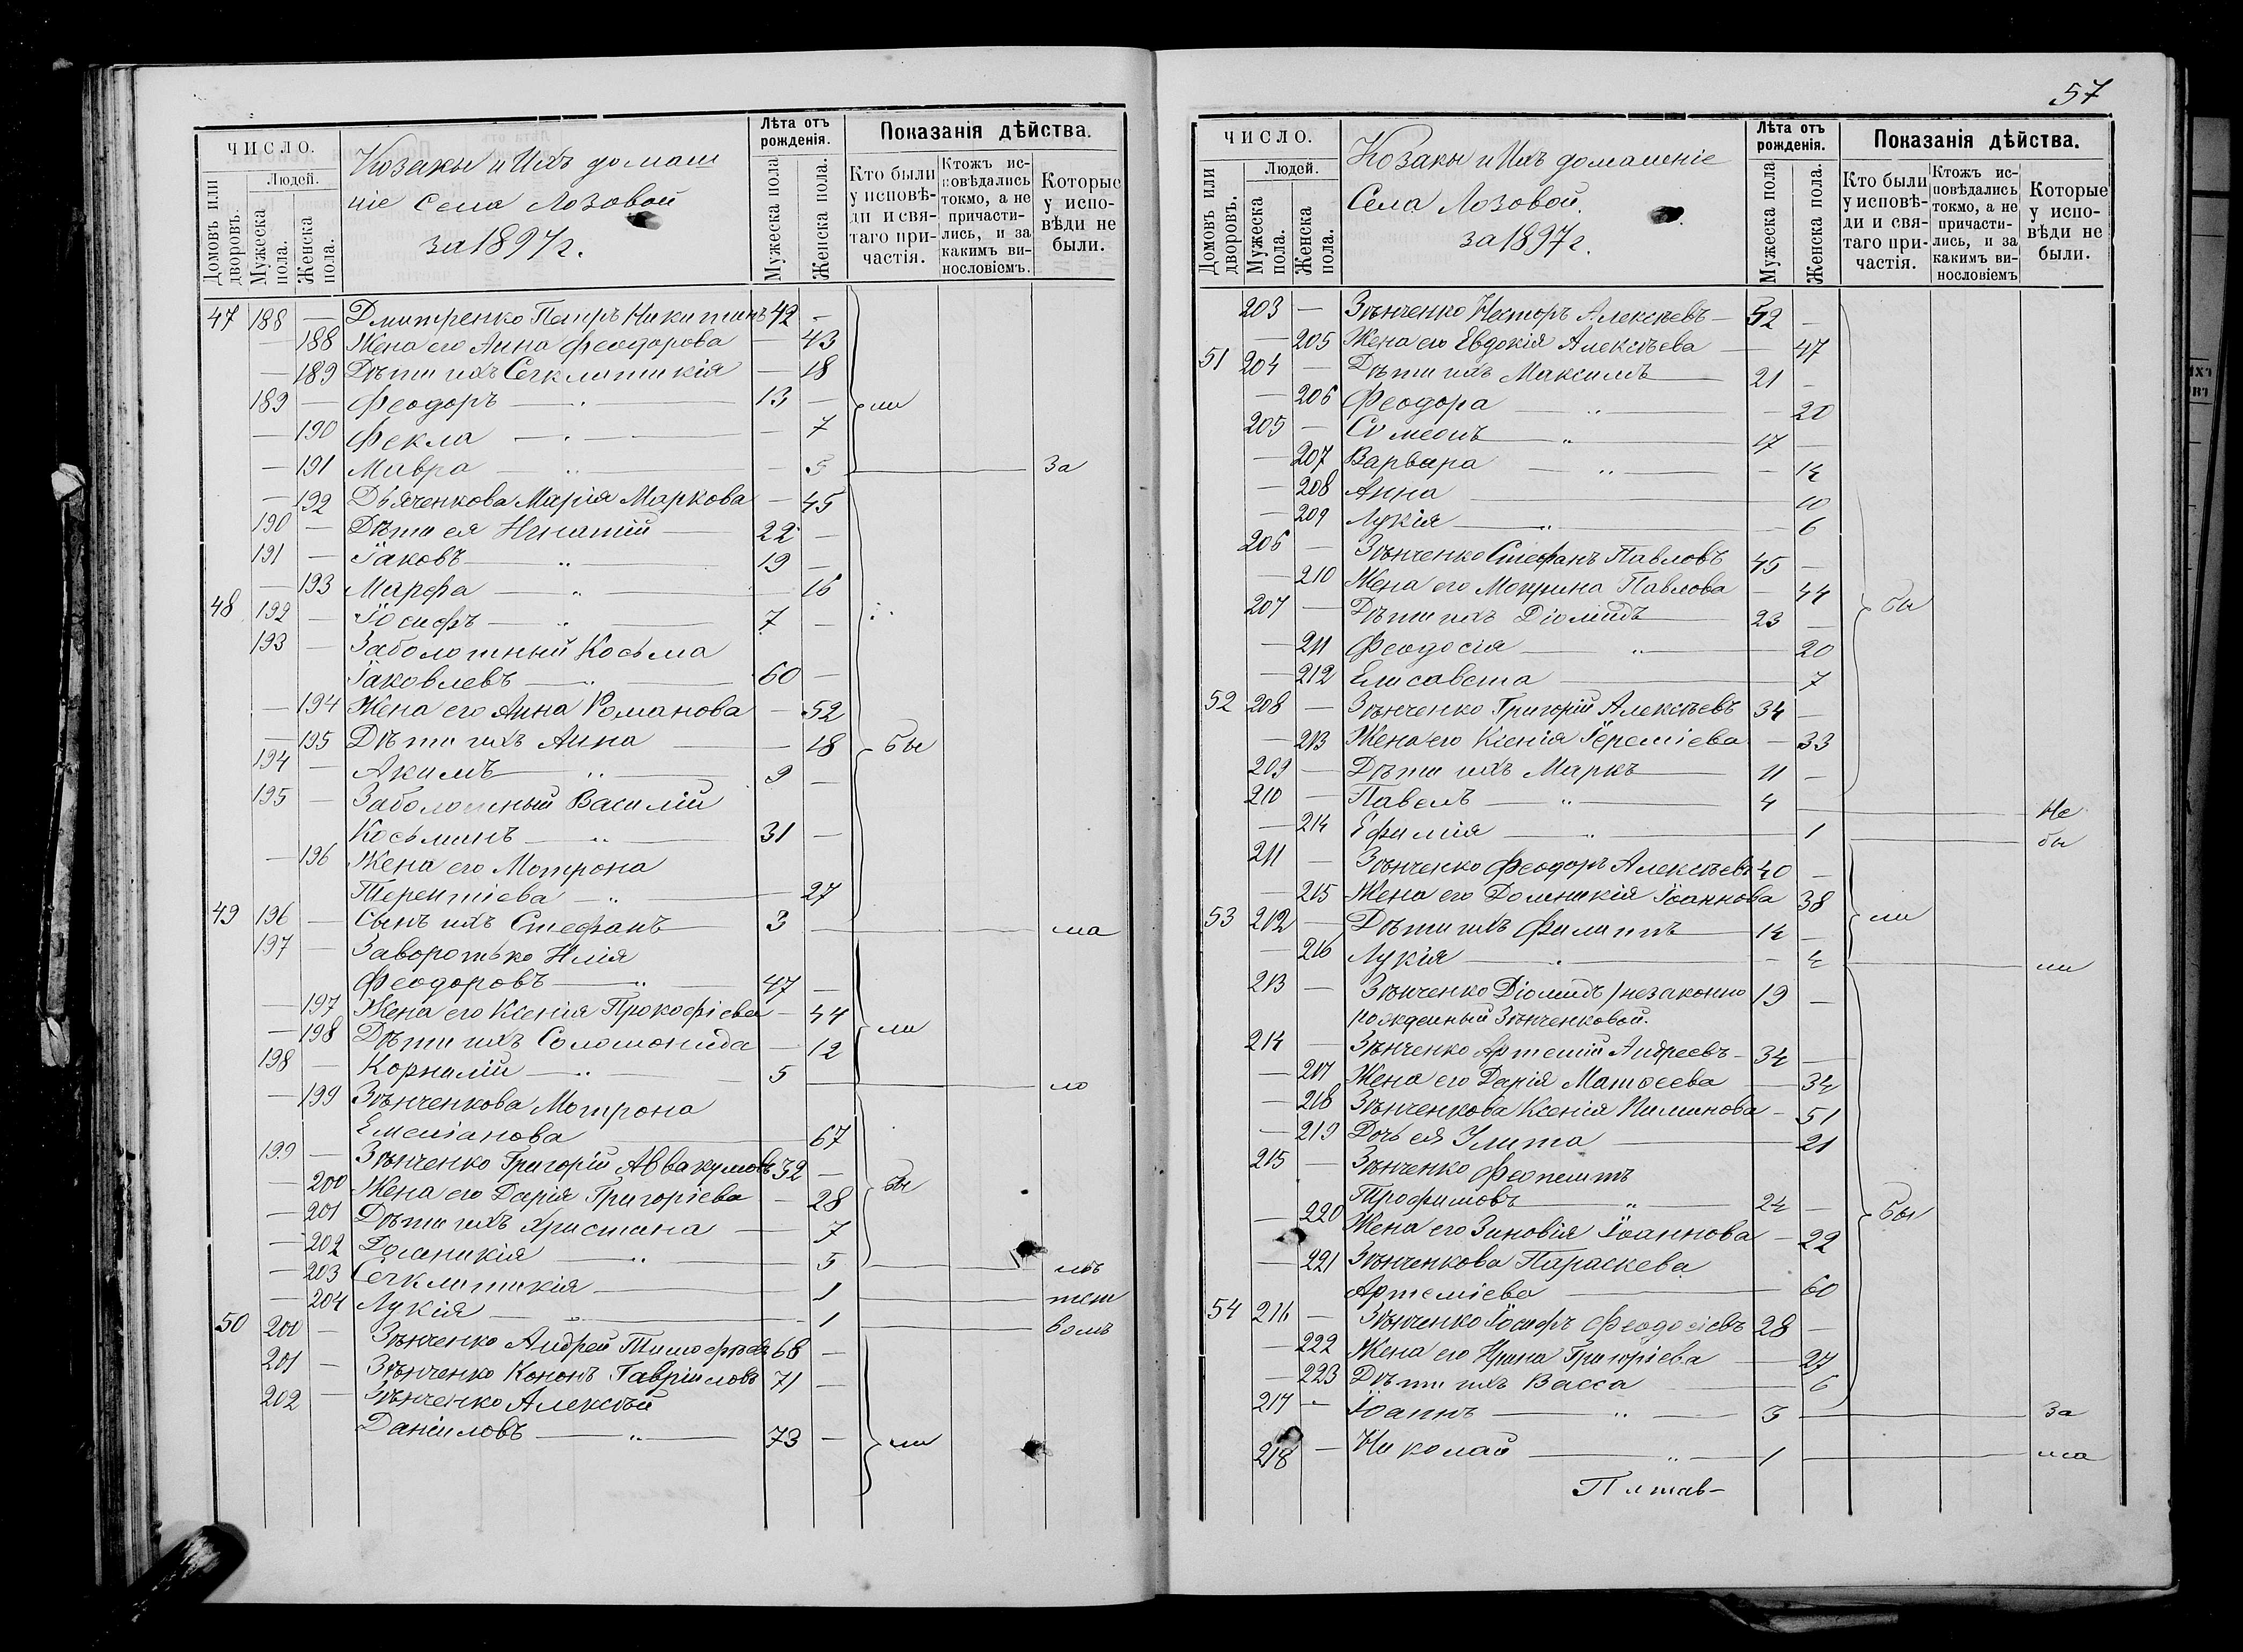 57
ЧИСЛО.
Домовъ или дворовъ.
Людей.
Мужеска пола.
Женска пола.
Козаки и Ихъ домаш
ніе Села Лозовой
за 1897 г.
Лѣта отъ рожденія.
Мужеска пола
Женска пола.
Показанія дѣйства.
Кто были у исповѣ-ди и свя-таго при-частія.
Ктожъ ис-повѣдались токмо, а не причасти-лись, и за какимъ ви-нословіемъ.
Которые у испо-вѣди не были.
47 188 — Дмитренко Петръ Никитинъ 42 —
— 188 Жена его Анна Феодорова — 43
— 189 Дѣти ихъ Секлитикія — 18
189 — Феодоръ — 13 — ли
— 190 Фекла — — 7
— 191 Мавра — — 5 — За
— 192 Дьяченкова Марія Маркова — 45
190 — Дѣти ея Игнатій — 22 —
191 — Іаковъ — 19 —
— 193 Марфа — — 16
48 192 — Іосифъ — 7 —
193 — Заболотный Косьма
Іаковлевъ — 60 —
— 194 Жена его Анна Романова — 52
— 195 Дѣти ихъ Анна — 18 бы
194 — Акимъ — 9 —
195 — Заболотный Василій
Косьминъ — 31 —
— 196 Жена его Мотрона
Терентіева — 27
49 196 — Сынъ ихъ Стефанъ — 3 — ма
197 — Заворотько Илія
Феодоровъ — 47 —
— 197 Жена его Ксенія Прокофіева — 44
— 198 Дѣти ихъ Соломонида — 12 ли
198 — Корнилій — 5 — ло
— 199 Зѣнченкова Мотрона
Емеліанова — 67
199 — Зѣнченко Григорій Аввакумовъ 32 —
— 200 Жена его Дарія Григоріева — 28 бы
— 201 Дѣти ихъ Христина — 7
— 202 Домникія — 5 — лѣ
— 203 Секлитикія — 1 — тст
— 204 Лукія — 1 — вомъ
50 200 — Зѣнченко Андрей Тимофѣевъ 68 —
201 — Зѣнченко Кононъ Гавріиловъ 71 —
202 — Зѣнченко Алексѣй
Даніиловъ — 73 — ли
ЧИСЛО.
Домовъ или дворовъ.
Людей.
Мужеска пола.
Женска пола.
Козаки и Ихъ домашніе
Села Лозовой.
за 1897 г.
Лѣта отъ рожденія.
Мужеска пола
Женска пола.
Показанія дѣйства.
Кто были у исповѣ-ди и свя-таго при-частія.
Ктожъ ис-повѣдались токмо, а не причасти-лись, и за какимъ ви-нословіемъ
Которые у испо-вѣди не были.
203 — Зѣнченко Несторъ Алексѣевъ — 52 —
— 205 Жена его Евдокія Алексѣева — 47
51 204 — Дѣти ихъ Максимъ — 21 —
— 206 Феодора — — 20
205 — Симеонъ — 17 —
— 207 Варвара — — 14
— 208 Анна — 10
— 209 Лукія — — 6
206 — Зѣнченко Стефанъ Павловъ 45 —
— 210 Жена его Мотрина Павлова — 44
207 — Дѣти ихъ Діомидъ — 23 — бы
— 211 Феодосія — 20
— 212 Елисавета — 7
52 208 — Зѣнченко Григорій Алексѣевъ 34 —
— 213 Жена его Ксенія Іереміева — 33
209 — Дѣти ихъ Маркъ — 11 —
210 — Павелъ — 4 — Не
— 214 Ефимія — 1 — бы
211 — Зѣнченко Феодоръ Алексѣевъ 40 —
— 215 Жена его Домникія Іоаннова 38
53 212 — Дѣти ихъ Филиппъ — 14 — ли
— 216 Лукія — — 4 — ли
213 — Зѣнченко Діомидъ /незаконно 19 —
рожденный Зѣнченковой.
214 — Зѣнченко Артемій Андреевъ — 34 —
— 217 Жена его Дарія Матѳеева — 34
— 218 Зѣнченкова Ксенія Пиминова — 51
— 219 Дочь ея Улита — 21
215 — Зѣнченко Феопемптъ
Трофимовъ — 24 — бы
— 220 Жена его Зиновія Іоаннова — 22
— 221 Зѣнченкова Параскева
Артеміева — 60
54 216 — Зѣнченко Іосифъ Феодосіевъ 28 —
— 222 Жена его Ирина Григоріева — 27
— 223 Дѣти ихъ Васса — 6
217 — Іоаннъ — 3 — За
218 — Николай — 1 — ма